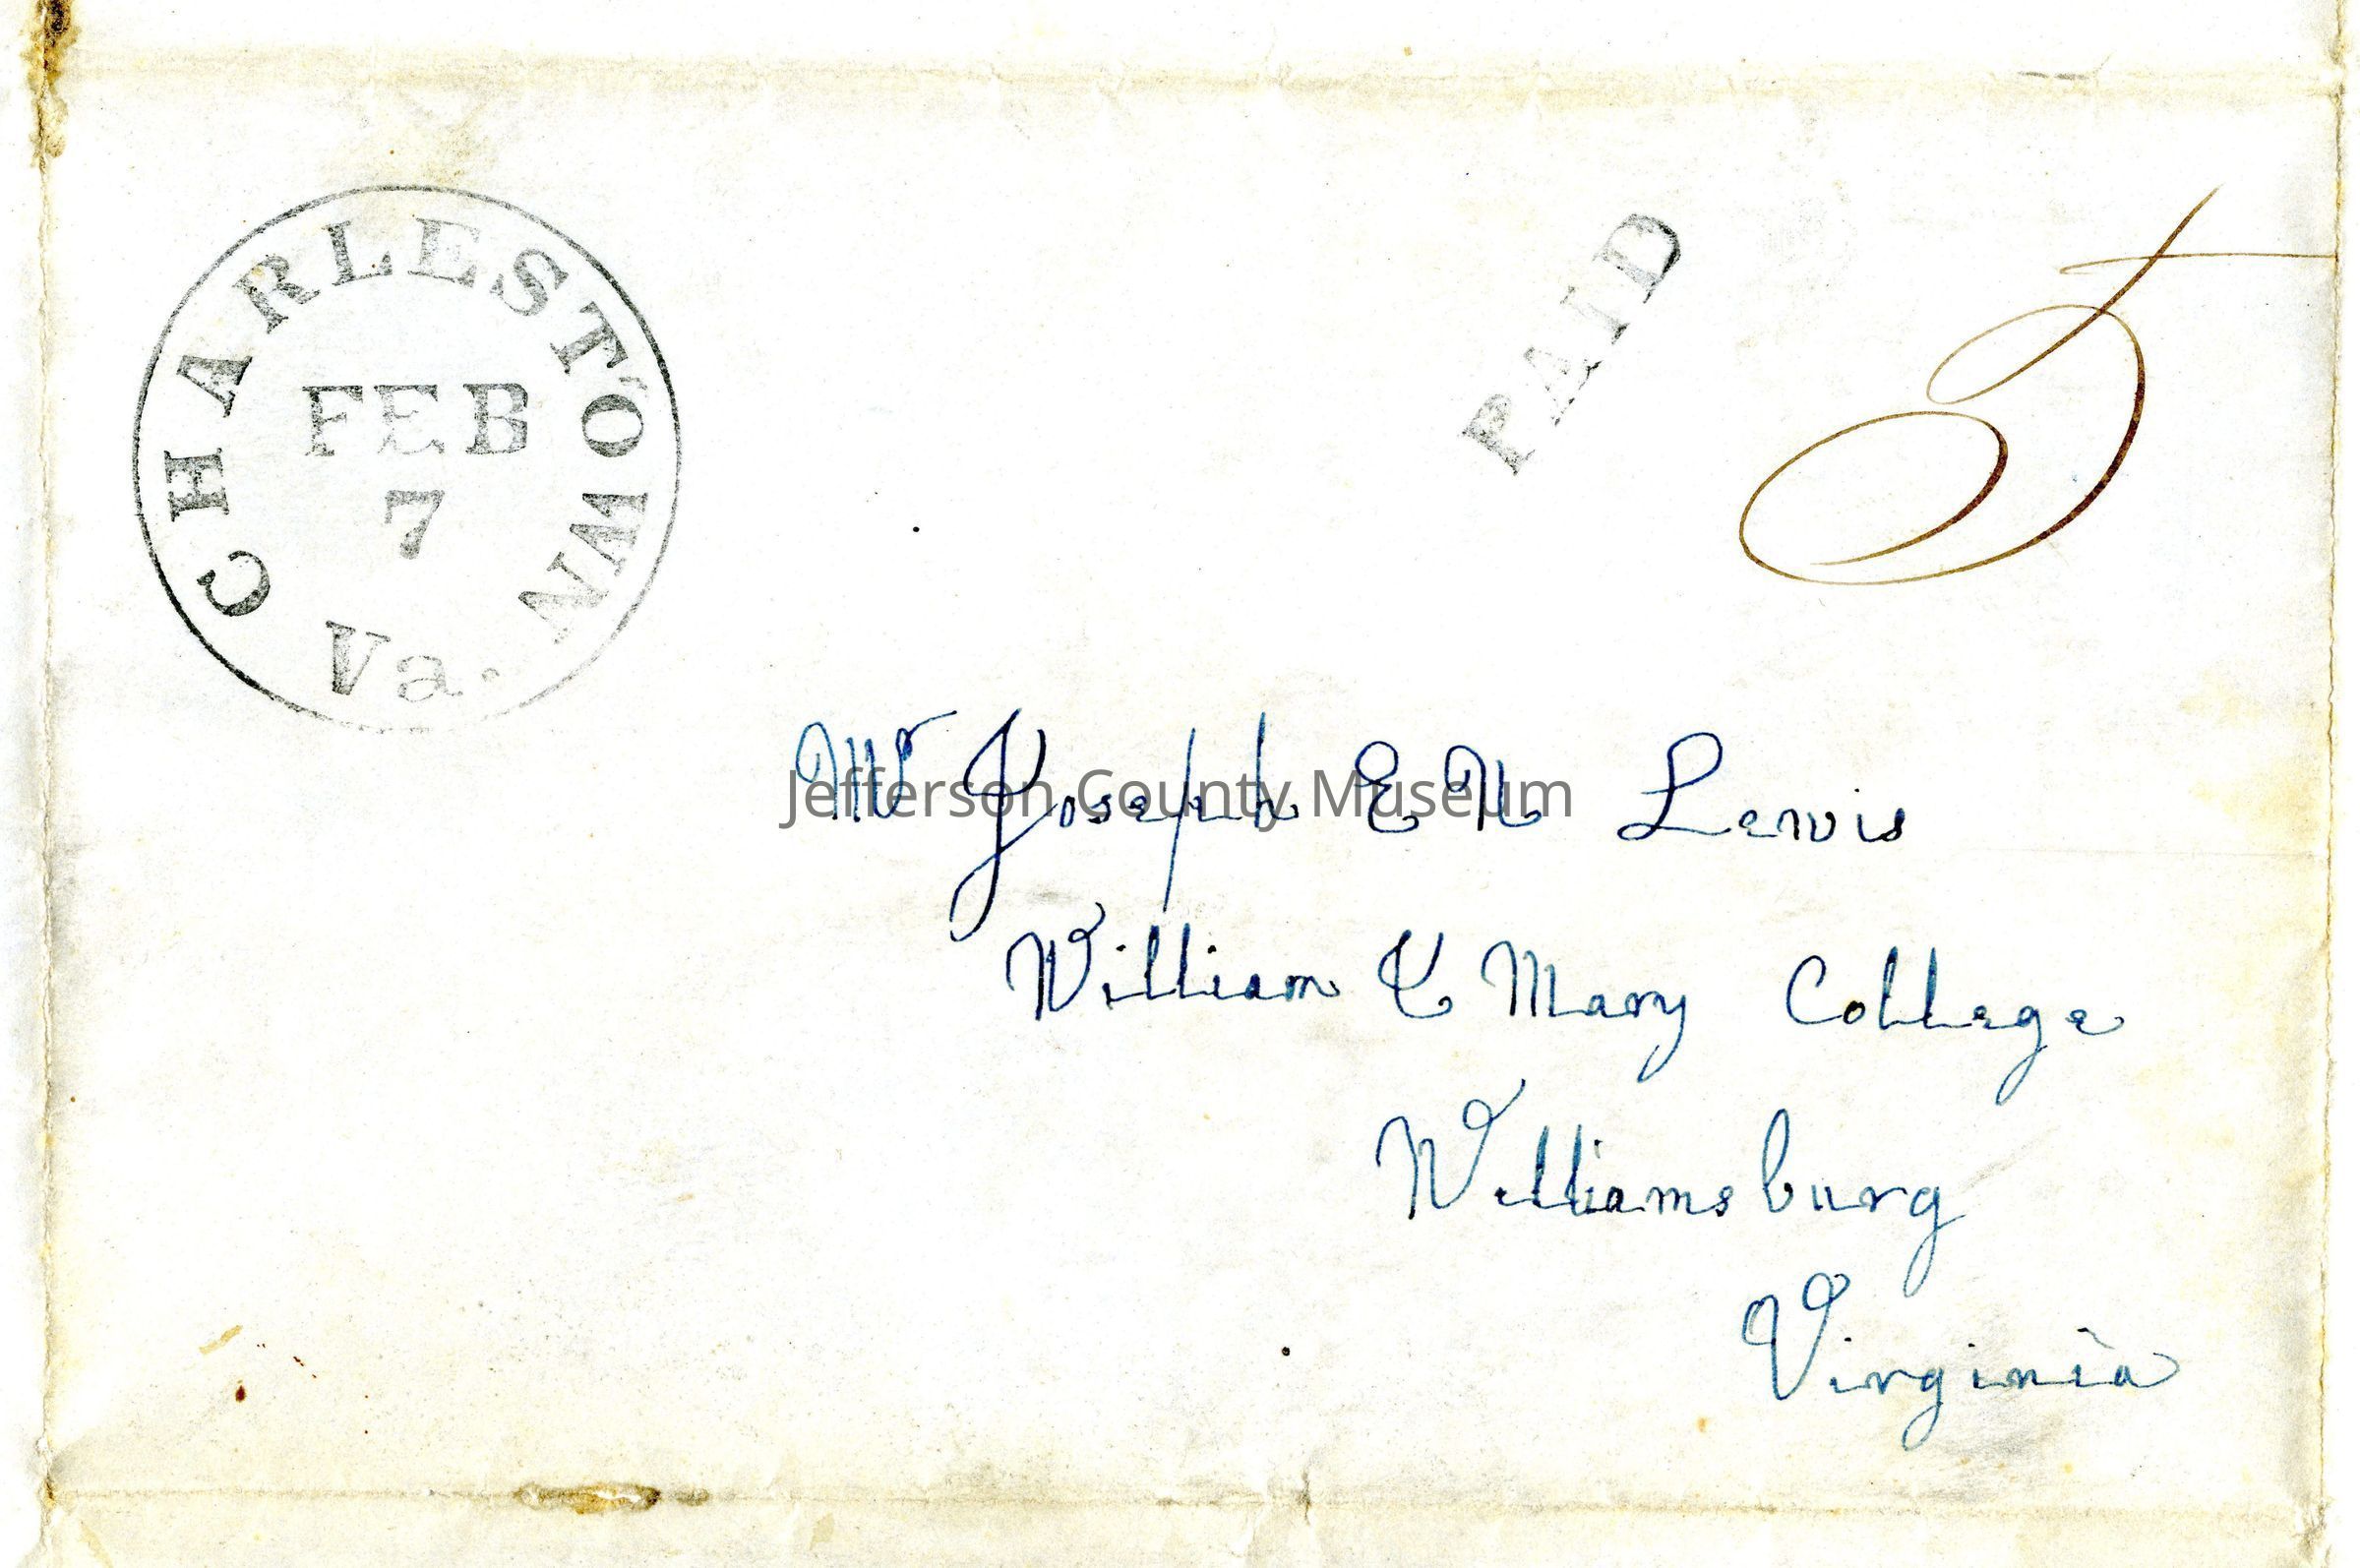 CHARLESTOWN
FEB
7
Va.
PAID
5
Mr Joseph E N Lewis
William & Mary College
Williamsburg
Virginia
Jefferson County Museum